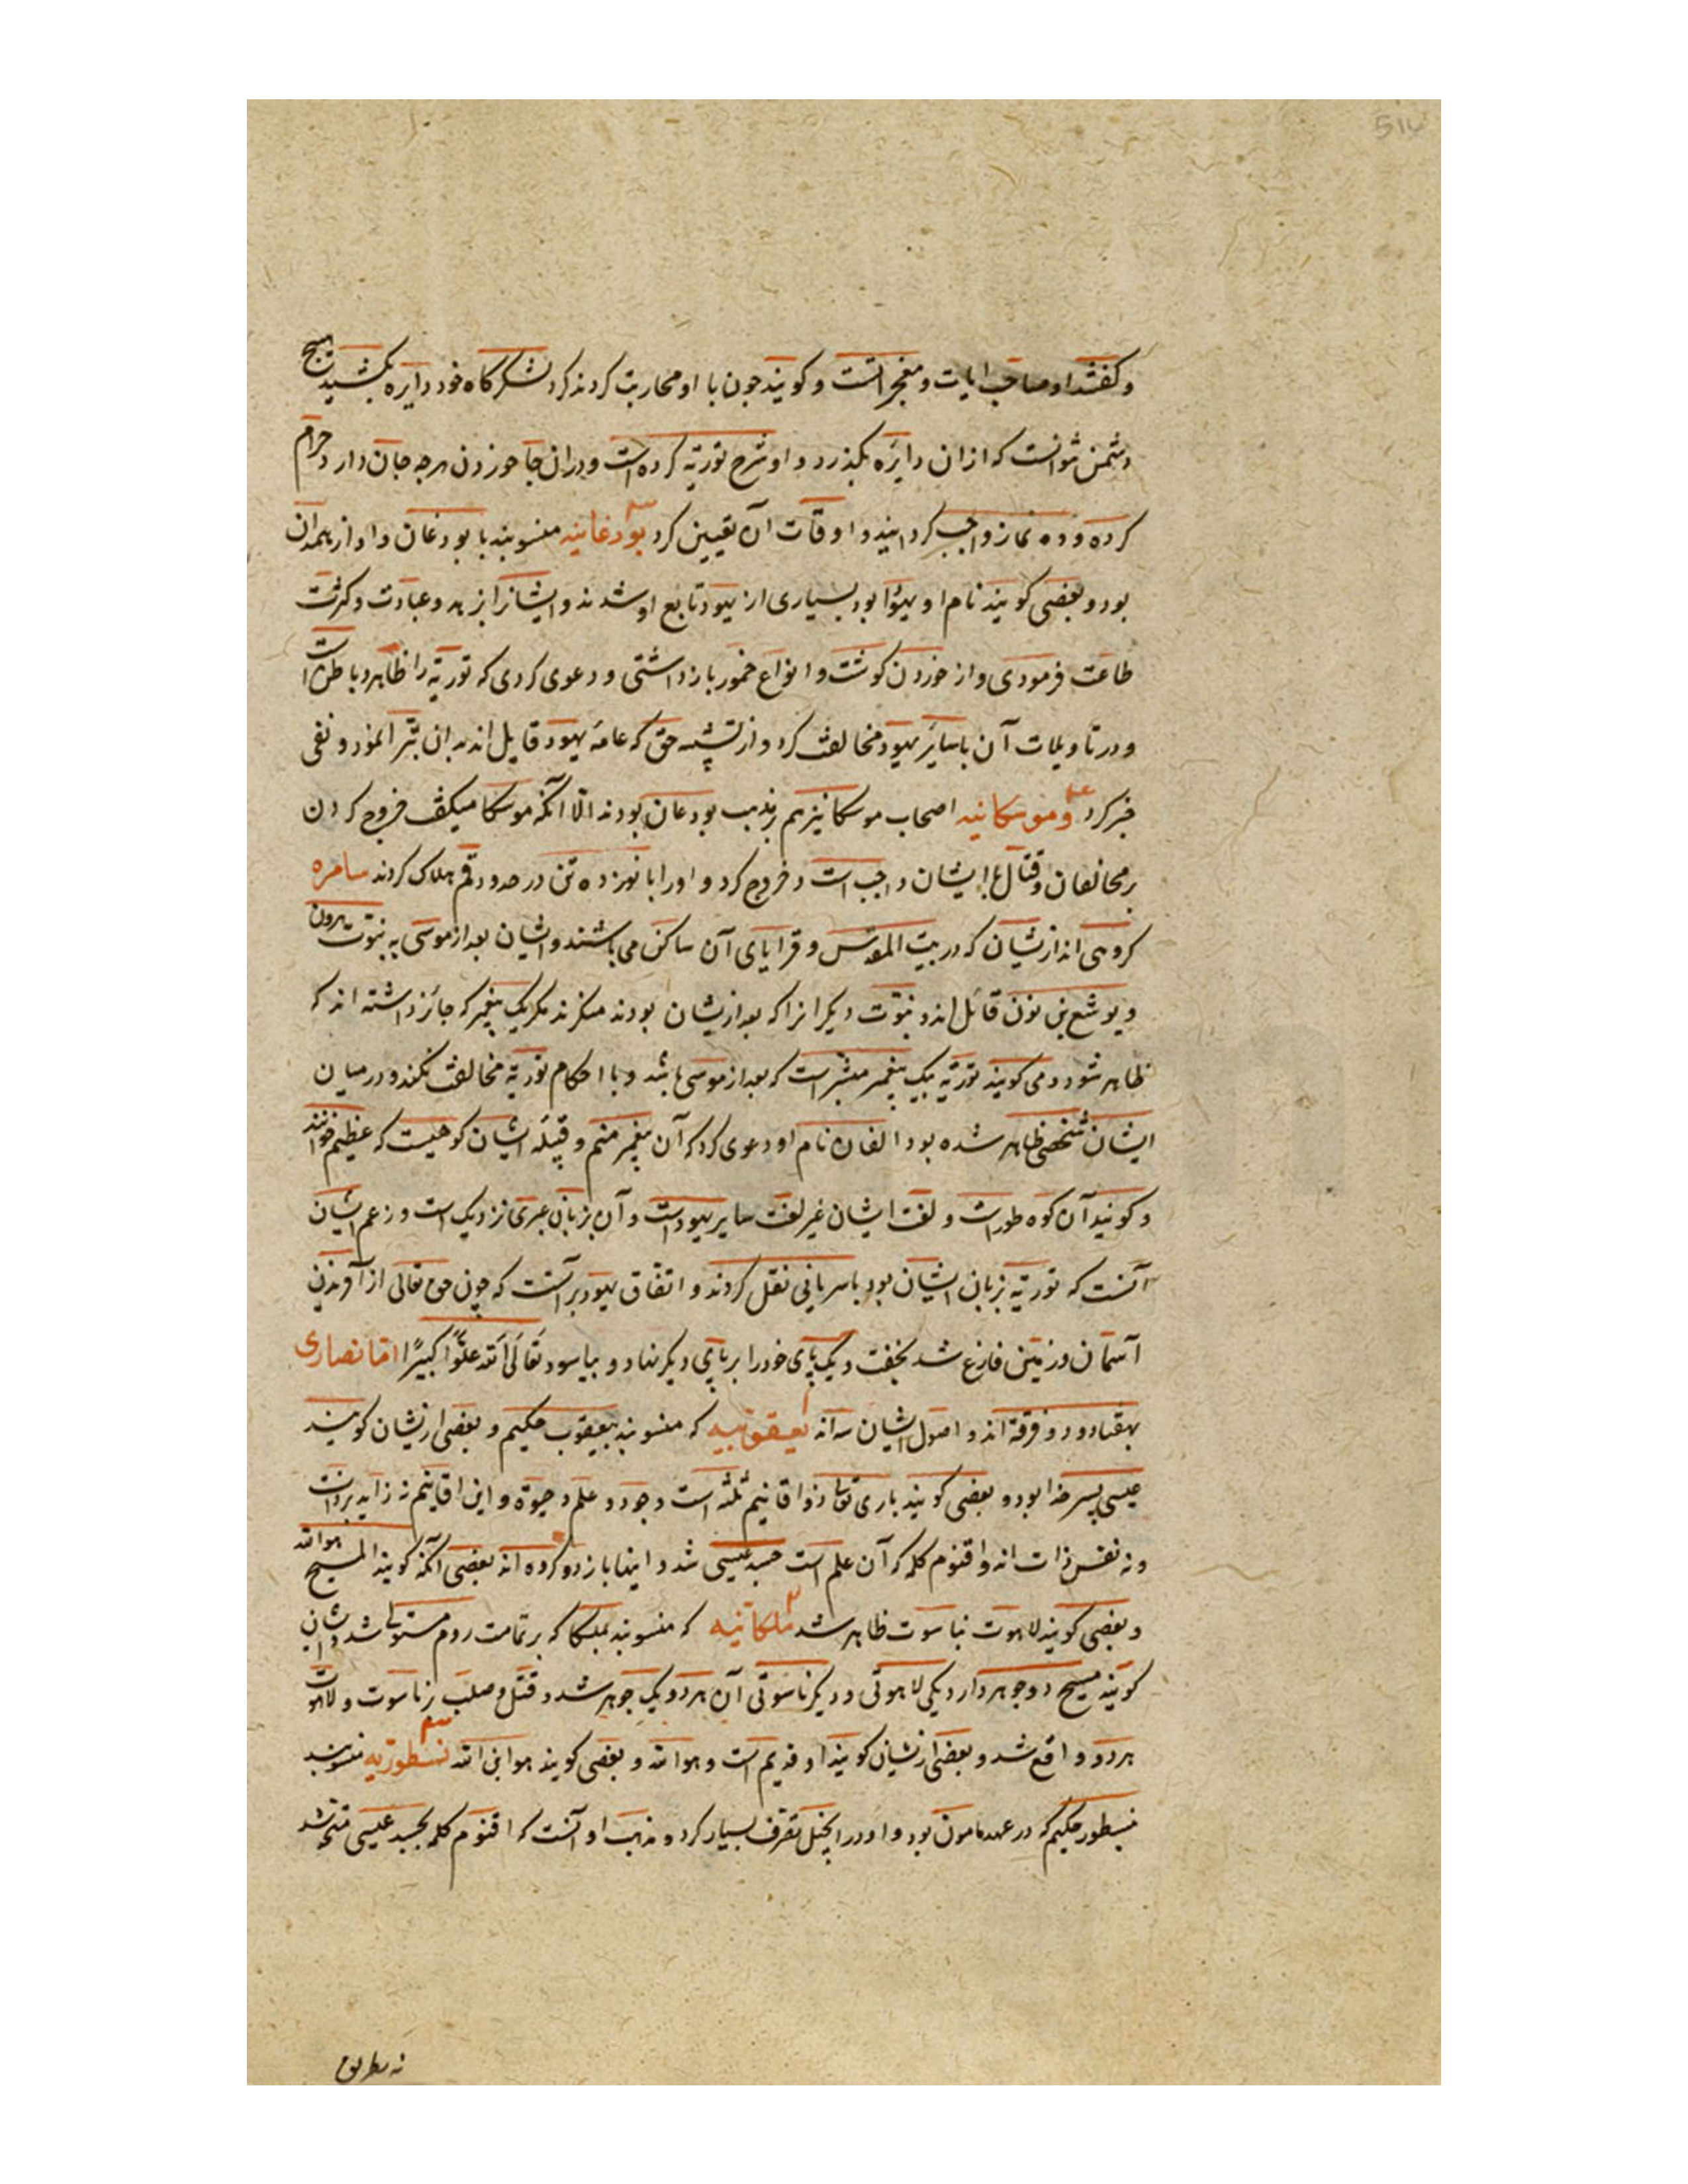 514
و گفتند او صاحب ایات و معجزاتست و گویند چون با او محاربت کردند کرد لشکرگاه خود دایره بکشید هیچ
دشمن نتوانست که از ان دایره بگذرد و او شرح توریة کرده است و در ان جا خوردن هرچه جان دارد حرام
کرده و ده نماز واجب گردانید و اوقات آن تعیین کرد بودغانیه منسوبند با بودغان و او از همدان
بود و بعضی گویند نام او یهودا بود بسیاری از یهود تابع او شدند و ایشانرا بزهد و عبادت و کثرت
طاعت فرمودی و از خوردن گوشت و انواع خمور باز داشتی و دعوی کردی که توریة را ظاهر و باطن است
و در تاویلات آن با سایر یهود مخالفت کرد و از تشبیه حق که عامه یهود قایل اند بدان تبرا نمود و نفی
خبر کرد و موسکانیه اصحاب موسکا نیز هم بر مذهب بودعان بودند الّا آنکه موسکا میگفت خروج کردن
بر مخالفان و قتال با ایشان واجب است و خروج کرد و او را با نوزده تن در حدود قم هلاک کردند سامره
گروهی اند از یشان که در بیت المقدس و قرایای آن ساکن می باشند و ایشان بعد از موسی به نبوت هرون
و یوشع بن نون قائل اند و نبوت دیگرانرا که بعد از یشان بودند منکرند مگر یک پیغمبر که جائز داشته اند که
ظاهر شود و می گویند توریة بیک پیغمبر مبشر است که بعد از موسی باشد و با احکام توریة مخالفت نکند و در میان
ایشان شخصی ظاهر شده بود الفان نام او دعوی کرد که آن پیغمبر منم و قبیله ایشان کوهیست که عظیم خوانند
و گویند آن کوه طور است و لغت ایشان غیر لغت سایر یهود است و آن بزبان عبری نزدیک است و زعم ایشان
آنست که توریة بزبان ایشان بود با سریانی نقل کردند و اتفاق یهود بر آنست که چون حق تعالی از آفریدن
آسمان و زمین فارغ شد بخفت و یک پای خود را بر پای دیگر نهاد و بیاسود تعالی الله علوًّا کبیرًا امّا نصاری
بهفتاد و دو فرقه اند و اصول ایشان سه اند یعقوبیه که منسوبند بیعقوب حکیم و بعضی از یشان گویند
عیسی پسر خدا بود و بعضی گویند باری تعالی ذو اقانیم ثلثه است وجود و علم و حیوة و این اقانیم نه زاید بر ذات
و نه نفس ذات اند و اقنوم کلمه که آن علم است جسد عیسی شد و اینها باز دو گروه اند بعضی آنکه گویند المسیح هو الله
و بعضی گویند لاهوت بناسوت ظاهر شد ملکانیه که منسوبند بملکا که بر تمامت روم مستولی شد و ایشان
گویند مسیح دو جوهر دارد یکی لاهوتی و دیگر ناسوتی آن هر دو یک جوهر شد و قتل و صلب بر ناسوت و لاهوت
هر دو واقع شد و بعضی از یشان گویند او قدیم است و هو الله و بعضی گویند هو ابن الله نسطوریه منسوبند
بنسطور حکیم که در عهد مامون بود و او در انجیل تصرف بسیار کرد و مذهب او آنست که اقنوم کلمه بجسد عیسی متحد شد
نه بطریق